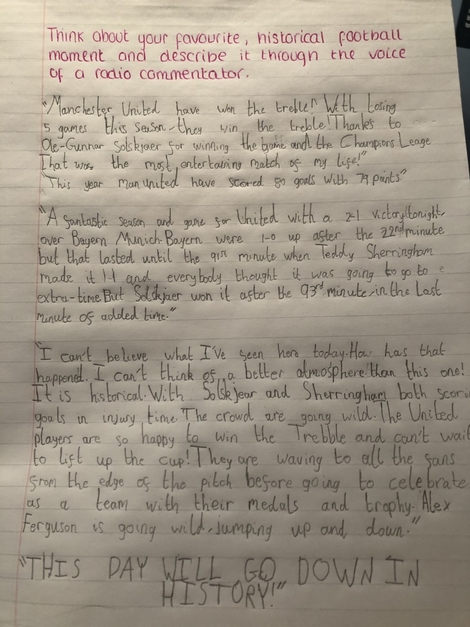 Think about your favourite, historical football
moment and describe it through the voice
of a radio commentator.
"Manchester United have won the treble! With losing
5 games this season they win the treble! Thanks to
Ole-Gunnar Solskjaer for winning the game and the Champions Leage
That was the most entertaining match of my life!"
"This year man united have scored 80 goals with 79 points"
"A fantastic season and game for United with a 2-1 victory tonight
over Bayern Munich. Bayern were 1-0 up after the 22nd minute
but that lasted until the 91st minute when Teddy Sherringham
made it 1-1 and everybody thought it was going to go to
extra-time. But Solskjaer won it after the 93rd minute in the last
minute of added time."
"I can't believe what I've seen here today. How has that
happened. I can't think of a better atmosphere than this one!
It is historical. With Solskjear and Sherringham both scorin
goals in injury time. The crowd are going wild. The United
players are so happy to win the Trebble and can't wait
to lift up the cup! They are waving to all the fans
from the edge of the pitch before going to celebrate
as a team with their medals and trophy. Alex
Ferguson is going wild. Jumping up and down."
"THIS DAY WILL GO DOWN IN
HISTORY!"